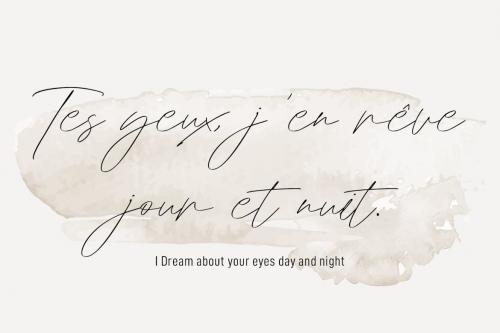 Tes yeux, j'en rêve
jour et nuit.
I Dream about your eyes day and night